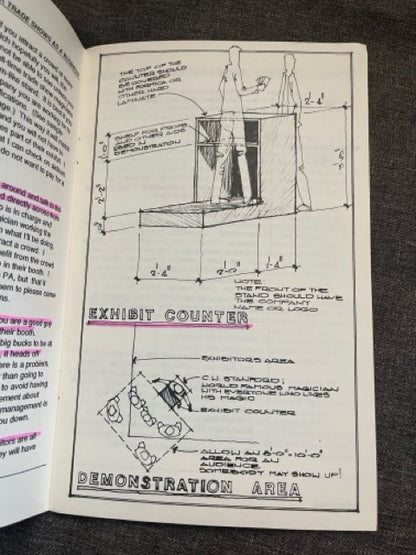 R TRADE SHOWS AS A BUSINESS
you attract a crowd
around and talk to the
directly across from
o is in charge and
gician working the
n what I'll be doing,
ract a crowd. I
nefit from the crowd
o in their booth. I
PA, but that is
em to please some
ns.
ou are a good guy
their booth.
big bucks to be at
, it heads off
ere is a problem,
r than going to
to avoid having
ement about
management is
ou down.
itors are all
ey will have
THE TOP OF THE
COUNTER SHOULD
BE COVERED
WITH FORMICA OR
OTHER HARD
LAMINATE
SHELF FOR PROPS
AND OTHER AIDS
USED IN
DEMONSTRATION
2'-4"
1'-0"
2'-2"
2'-4"
2'-0"
1'-4"
NOTE:
THE FRONT OF THE
STAND SHOULD HAVE
THE COMPANY
NAME OR LOGO
EXHIBIT COUNTER
EXHIBITORS AREA
C.W. STANFORD;
WORLD FAMOUS MAGICIAN
WITH EVERYONE WHO LIKES
HIS MAGIC
EXHIBIT COUNTER
ALLOW AN 8'-0" × 10'-0"
AREA FOR AN
AUDIENCE.
SOMEBODY MAY SHOW UP!
DEMONSTRATION AREA